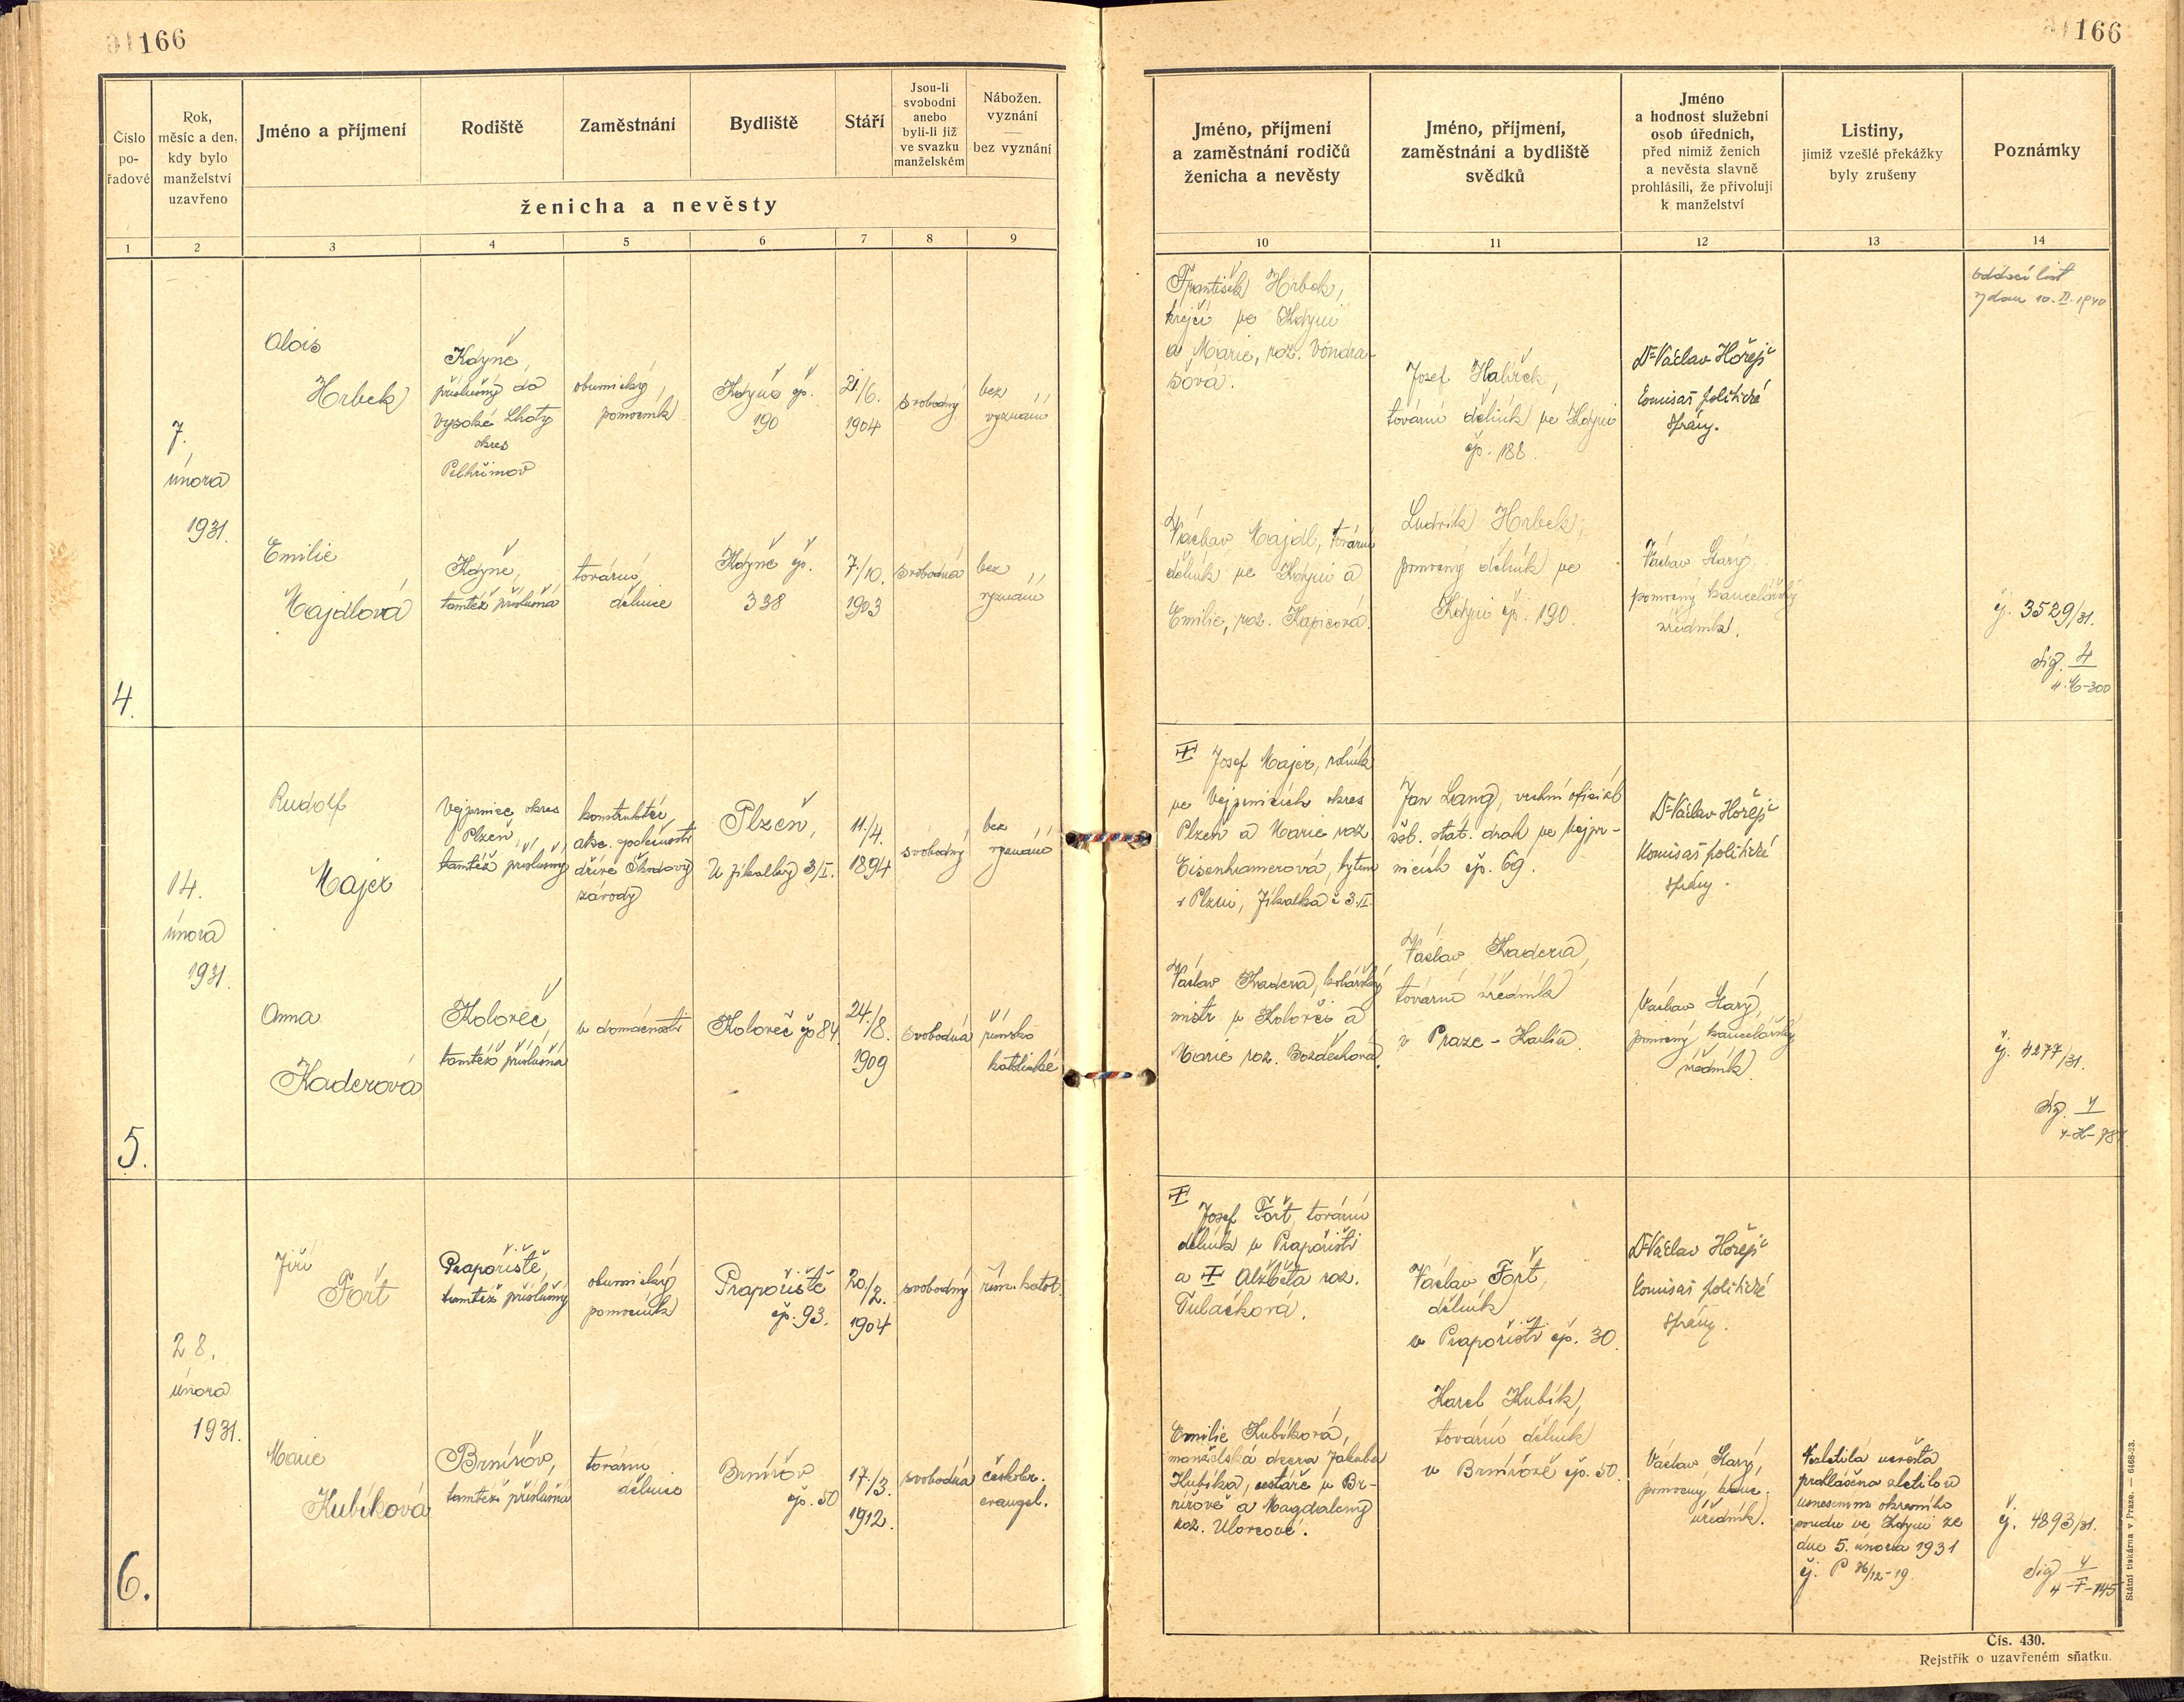 166
Číslo
po-
řadové
Rok,
měsíc a den,
kdy bylo
manželství
uzavřeno
Jméno a příjmení
Rodiště
Zaměstnání
Bydliště
Stáří
Jsou-li
svobodni
anebo
byli-li již
ve svazku
manželském
Nábožen.
vyznání
—
bez vyznání
ženicha a nevěsty
1 2 3 4 5 6 7 8 9
4.
7.
února
1931.
Alois
Hrbek
Kdyně,
příslušný do
Vysoké Lhoty
okres
Pelhřimov
obuvnický
pomocník
Kdyně čp.
190
21./6.
1904
svobodný
bez
vyznání
Emilie
Majdlová
Kdyně,
tamtéž příslušná
tovární
dělnice
Kdyně čp.
338
7./10.
1903
svobodná
bez
vyznání
5.
14.
února
1931.
Rudolf
Majer
Vejprnice, okres
Plzeň,
tamtéž příslušný
konstruktér,
akc. společnosti
dříve Škodovy
závody
Plzeň,
U Jikalky 3/I.
11./4.
1894
svobodný
bez
vyznání
Anna
Kaderová
Koloveč,
tamtéž příslušná
v domácnosti
Koloveč čp 84.
24./8.
1909
svobodná
římsko
katolické
6.
28.
února
1931.
Jiří
Fořt
Prapořiště,
tamtéž příslušný
obuvnický
pomocník
Prapořiště
čp. 93.
20./2.
1904
svobodný
řím. katol.
Marie
Kubíková
Brnířov,
tamtéž příslušná
tovární
dělnice
Brnířov
čp. 50
17./3.
1912.
svobodná
českobr.
evangel.
166
Jméno, příjmení
a zaměstnání rodičů
ženicha a nevěsty
Jméno, příjmení,
zaměstnání a bydliště
svědků
Jméno
a hodnost služební
osob úředních,
před nimiž ženich
a nevěsta slavně
prohlásili, že přivolují
k manželství
Listiny,
jimiž vzešlé překážky
byly zrušeny
Poznámky
10 11 12 13 14
František Hrbek,
krejčí ve Kdyni
a Marie, roz. Vondra-
sová.
Josef Halíček,
tovární dělník ve Kdyni
čp. 188.
Dr Václav Hořejš
komisař politické
správy.
oddací list
vydán 10. II. 1940
Václav Majdl, tovární
dělník ve Kdyni a
Emilie, roz. Kapicová.
Ludvík Hrbek,
pomocný dělník ve
Kdyni čp. 190.
Václav Starý,
pomocný kancelářský
úředník.
čj. 3529/31.
Sig. 4
Josef Majer, rolník
ve Vejprnicích okres
Plzeň a Marie roz.
Eisenhamerová, bytem
v Plzni, Jikalka č 3.II.
Jan Lang, vrchní oficiál
čsb. stát. drah ve Vejpr-
nicích čp. 69.
Dr Václav Hořejš
komisař politické
správy.
Václav Kadera, kolářský
mistr v Kolovči a
Marie roz. Bozděchová.
Václav Kadera,
tovární úředník
v Praze - Karlín.
Václav Starý,
pomocný kancelářský
úředník.
čj. 4277/31.
Josef Fořt, tovární
dělník v Prapořišti
a Alžběta roz.
Tulačková.
Václav Fořt,
dělník
v Prapořišti čp. 30.
Dr Václav Hořejš
komisař politické
správy.
Emilie Kubíková,
manželská dcera Jakuba
Kubíka, cestáře v Br-
nířově a Magdaleny
roz. Ulovcové.
Karel Kubík,
tovární dělník
v Brnířově čp. 50.
Václav Starý,
pomocný kanc.
úředník.
Nezletilá nevěsta
prohlášena zletilou
usnesením okresního
soudu ve Kdyni ze
dne 5. února 1931
čj. P 76/12-19.
čj. 4893/31.
Státní tiskárna v Praze. — 6468-23.
Čís. 430.
Rejstřík o uzavřeném sňatku.